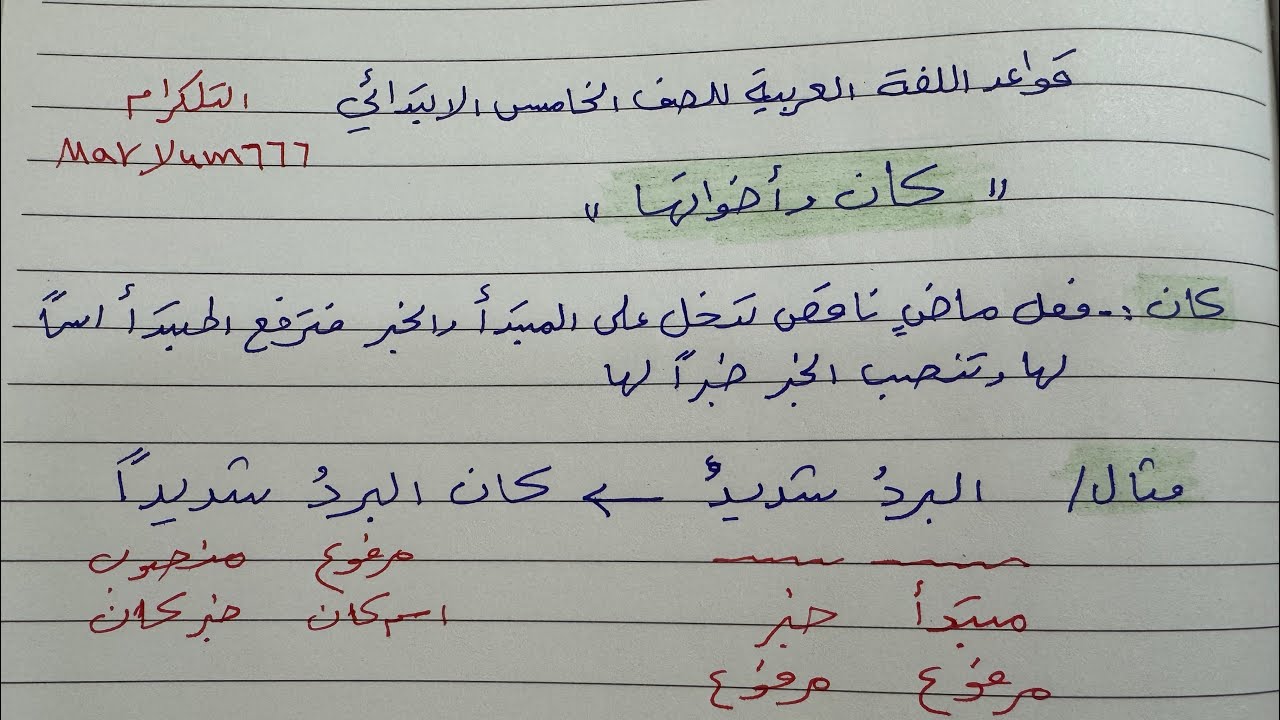 قواعد اللغة العربية للصف الخامس الابتدائي
التلكرام
Maryum777
" كان وأخواتها "
كان :- فعل ماضٍ ناقص تدخل على المبتدأ والخبر فترفع المبتدأ اسماً
لها وتنصب الخبر خبراً لها
مثال/ البردُ شديدٌ ← كان البردُ شديداً
مرفوع منصوب
مبتدأ خبر اسم كان خبر كان
مرفوع مرفوع